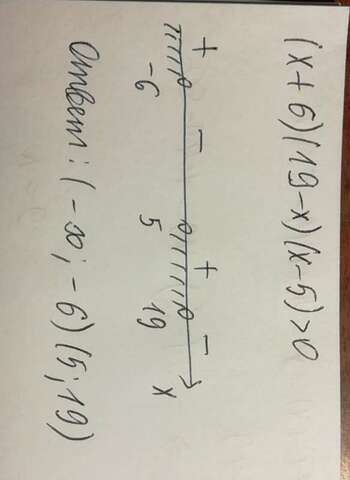 (x+6)(19-x)(x-5)>0
+ - + -
-6 5 19 x
Ответ: (-∞; -6) (5; 19)